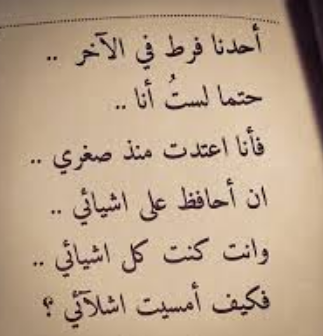 أحدنا فرط في الآخر ..
حتما لستُ أنا ..
فأنا اعتدت منذ صغري ..
ان أحافظ على اشيائي ..
وانت كنت كل اشيائي ..
فكيف أمسيت اشلآئي ؟